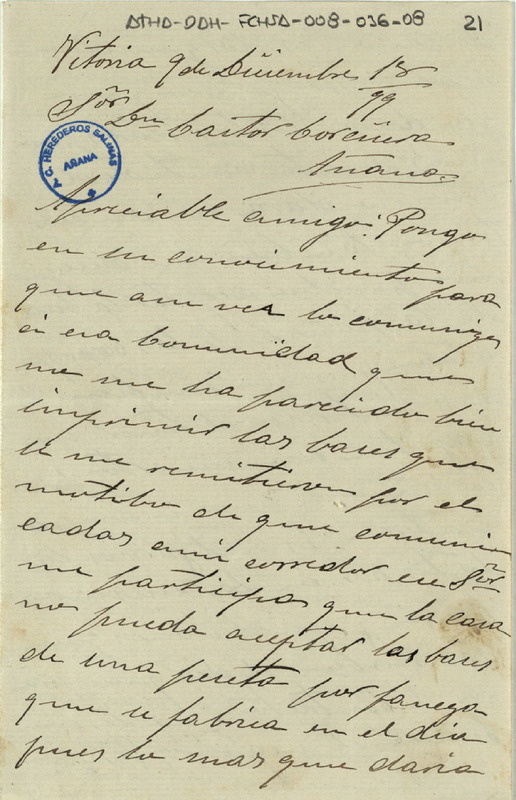 ATHA-DAH-FCHSA-008-036-08
21
Vitoria 9 de Diciembre 18
99
Sor Dn Castor Corcuera
Añana
A. C. HEREDEROS SALINAS
AÑANA
Apreciable amigo: Pongo
en su conocimiento para
que a su vez lo comunique
á esa Comunidad que
no me ha parecido bien
imprimir las bases que
se me remitieron por el
motibo de que comuni
cadas a mi corredor en
me participa que la casa
no pueda aceptar las bases
de una peseta por fanega
que se fabrica en el dia
pues lo mas que daria